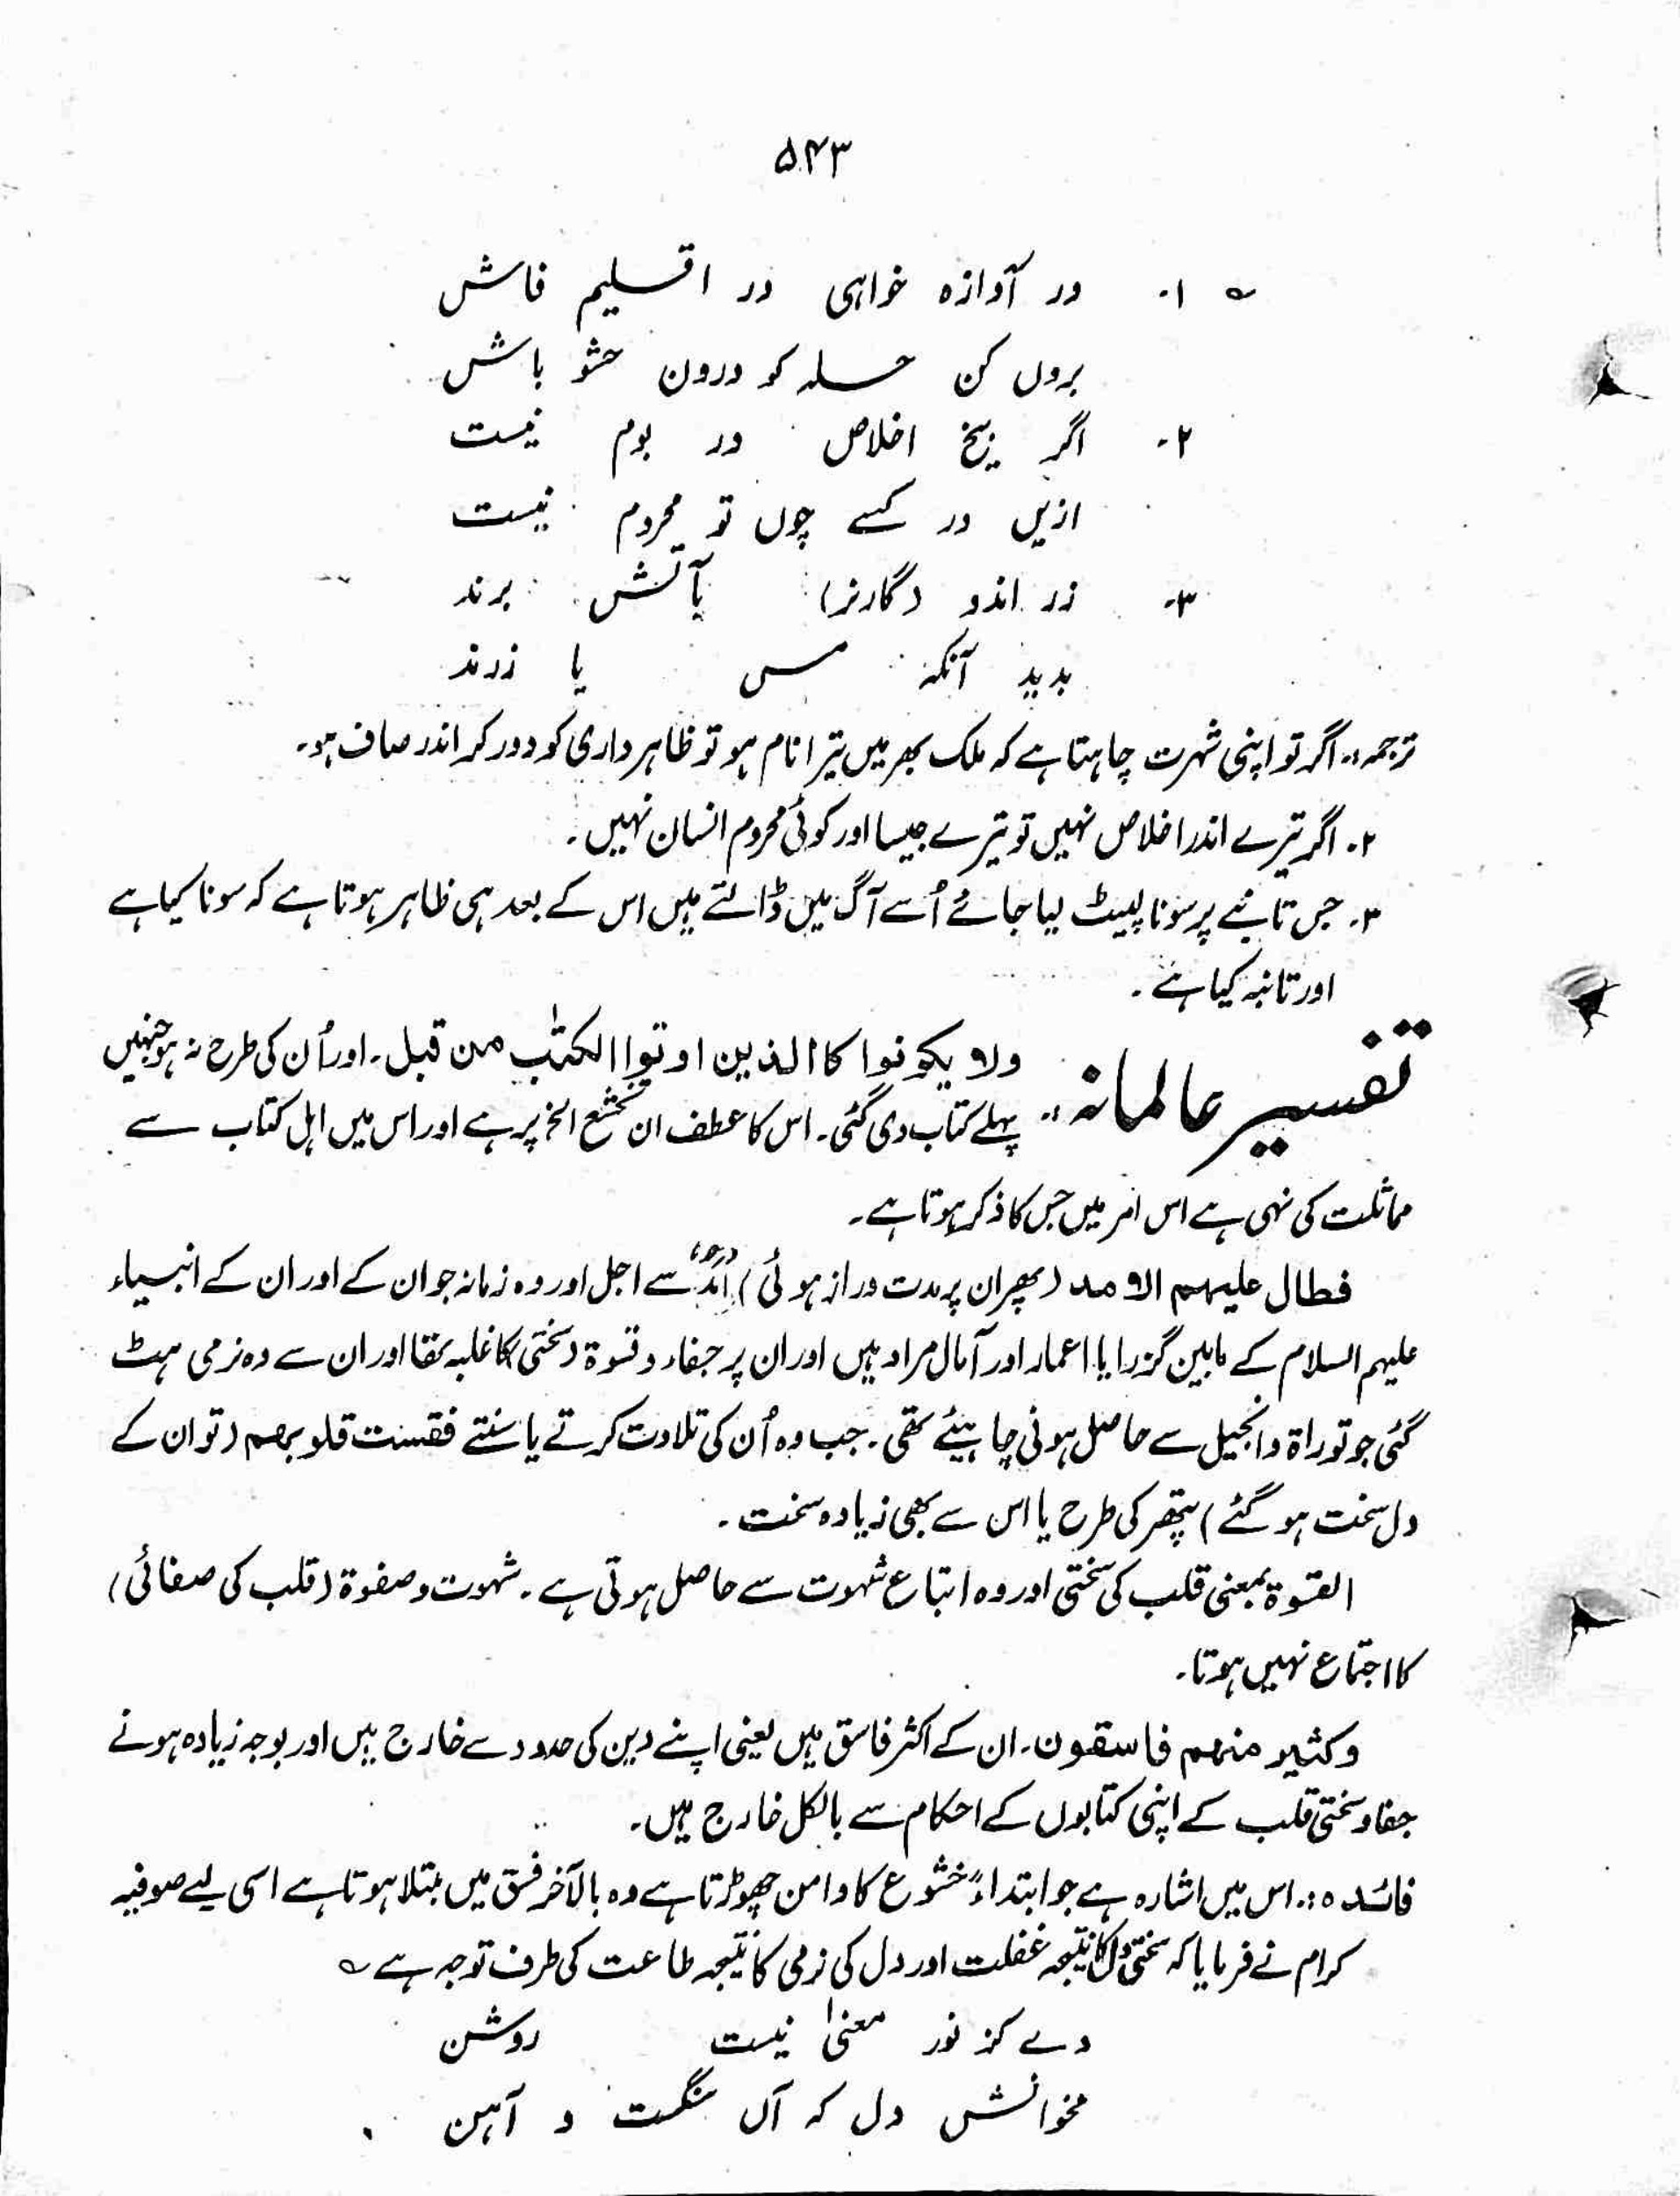 ۵۴۳
؎ ۱۔ ور آوازہ خواہی در اقلیم فاش
بروں کن حلہ کو درون حشو باش
۲۔ اگر بیخ اخلاص در بوم نیست
ازیں در کسے چوں تو محروم نیست
۳۔ زر اندو (گارنر) بآتش برند
بدید آنکہ مس یا زرند
ترجمہ:۔ اگر تو اپنی شہرت چاہتا ہے کہ ملک بھر میں تیرا نام ہو تو ظاہر داری کو دور کر اندر صاف ہو۔
۲۔ اگر تیرے اندر اخلاص نہیں تو تیرے جیسا اور کوئی محروم انسان نہیں۔
۳۔ جس تانبے پر سونا لپیٹ لیا جائے اُسے آگ میں ڈالتے ہیں اس کے بعد ہی ظاہر ہوتا ہے کہ سونا کیا ہے
اور تانبہ کیا ہے۔
تفسیر عالمانہ:۔ ولا یکونوا کاالذین اوتوا الکتٰب من قبل۔ اور اُن کی طرح نہ ہو جنہیں
پہلے کتاب دی گئی۔ اس کا عطف ان تخشع الخ پر ہے اور اس میں اہل کتاب سے
مماثلت کی نہی ہے اس امر میں جس کا ذکر ہوتا ہے۔
فطال علیہم الامد (پھر ان پر مدت دراز ہوئی) اَمَدُ سے اجل اور وہ زمانہ جو ان کے اور ان کے انبیاء
علیہم السلام کے مابین گزرا یا اعمار اور آمال مراد ہیں اور ان پر جفاء و قسوۃ (سختی) کا غلبہ تھا اور ان سے وہ نرمی ہٹ
گئی جو توراۃ و انجیل سے حاصل ہونی چاہیئے تھی۔ جب وہ اُن کی تلاوت کرتے یا سنتے فقست قلوبھم (تو ان کے
دل سخت ہو گئے) پتھر کی طرح یا اس سے بھی زیادہ سخت۔
القسوۃ بمعنی قلب کی سختی اور وہ اتباع شہوت سے حاصل ہوتی ہے۔ شہوت و صفوۃ (قلب کی صفائی)
کا اجتماع نہیں ہوتا۔
وکثیر منہم فاسقون۔ ان کے اکثر فاسق ہیں یعنی اپنے دین کی حدود سے خارج ہیں اور بوجہ زیادہ ہونے
جفا و سختی قلب کے اپنی کتابوں کے احکام سے بالکل خارج ہیں۔
فائدہ:۔ اس میں اشارہ ہے جو ابتداءً خشوع کا دامن چھوڑتا ہے وہ بالآخر فسق میں مبتلا ہوتا ہے اسی لیے صوفیہ
کرام نے فرمایا کہ سختی دل کا نتیجہ غفلت اور دل کی نرمی کا نتیجہ طاعت کی طرف توجہ ہے ؎
دے کز نور معنیٰ نیست روشن
مخوانش دل کہ آں سنگست و آہن